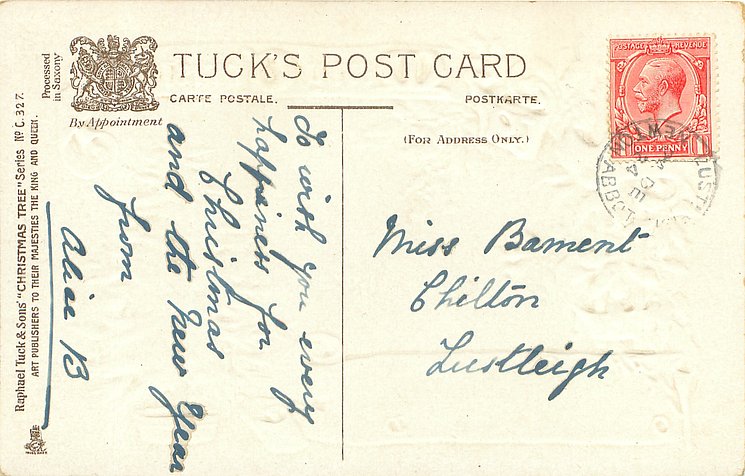 TUCK'S POST CARD
CARTE POSTALE.
POSTKARTE.
Processed
in Saxony
By Appointment
(FOR ADDRESS ONLY.)
Raphael Tuck & Sons' "CHRISTMAS TREE" Series Nº C. 327.
ART PUBLISHERS TO THEIR MAJESTIES THE KING AND QUEEN.
To wish you every
happiness for
Christmas
and the New Year
from
Alice B
POSTAGE REVENUE
ONE PENNY
1
NEWTON ABBOT
Miss Bament
Chilton
Lustleigh